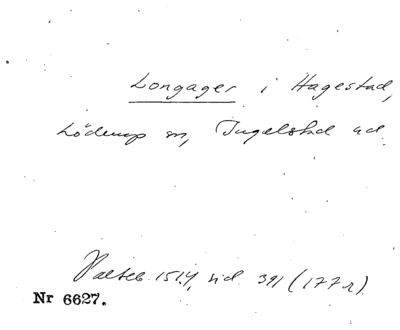 Longager i Hagestad,
Löderup sn, Ingelstad hd.
1514, sid. 391 (177 r).
Nr 6627.